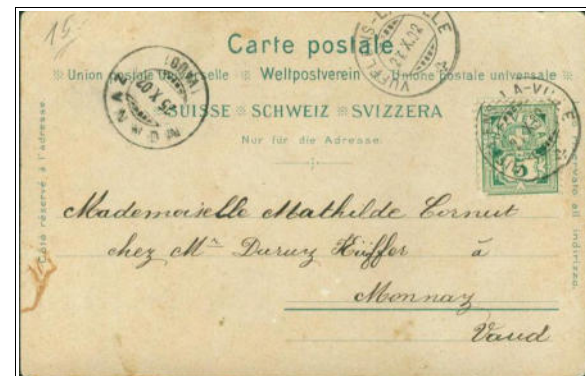 15.
Carte postale.
Union postale universelle Weltpostverein Unione postale universale
SUISSE SCHWEIZ SVIZZERA
Nur für die Adresse.
Côté réservé à l'adresse.
VUFFLENS-LA-VILLE
(VAUD)
LA-VILLE
5
Mademoiselle Mathilde Cornut
chez Mr Duruz Küffer à
Monnaz
Vaud